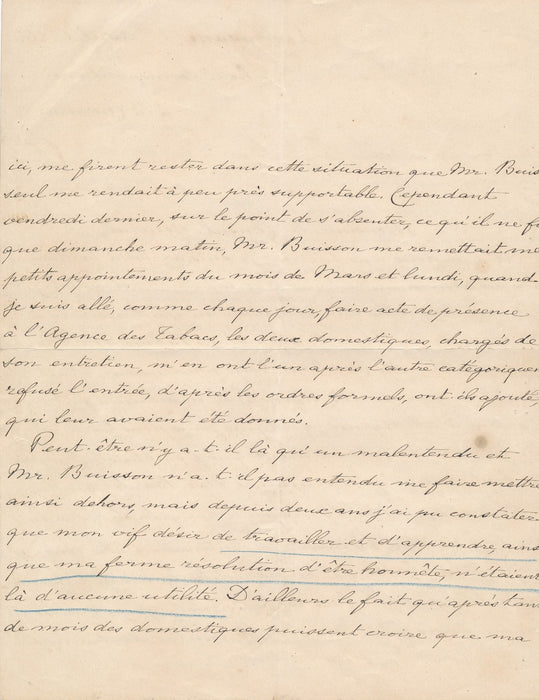 ici, me firent rester dans cette situation que Mr. Buis
seul me rendait à peu près supportable. Cependant
vendredi dernier, sur le point de s'absenter, ce qu'il ne f
que dimanche matin, Mr. Buisson me remettait me
petits appointements du mois de Mars et lundi, quand
je suis allé, comme chaque jour, faire acte de présence
à l'Agence des Tabacs, les deux domestiques, chargés de
son entretien, m'en ont l'un après l'autre catégoriquem
refusé l'entrée, d'après les ordres formels, ont-ils ajouté,
qui leur avaient été donnés.
Peut-être n'y a-t-il là qu'un malentendu et
Mr. Buisson n'a-t-il pas entendu me faire mettre
ainsi dehors, mais depuis deux ans j'ai pu constater
que mon vif désir de travailler et d'apprendre, ains
que ma ferme résolution d'être honnête, n'étaient
là d'aucune utilité. D'ailleurs le fait qu'après tan
de mois des domestiques puissent croire que ma